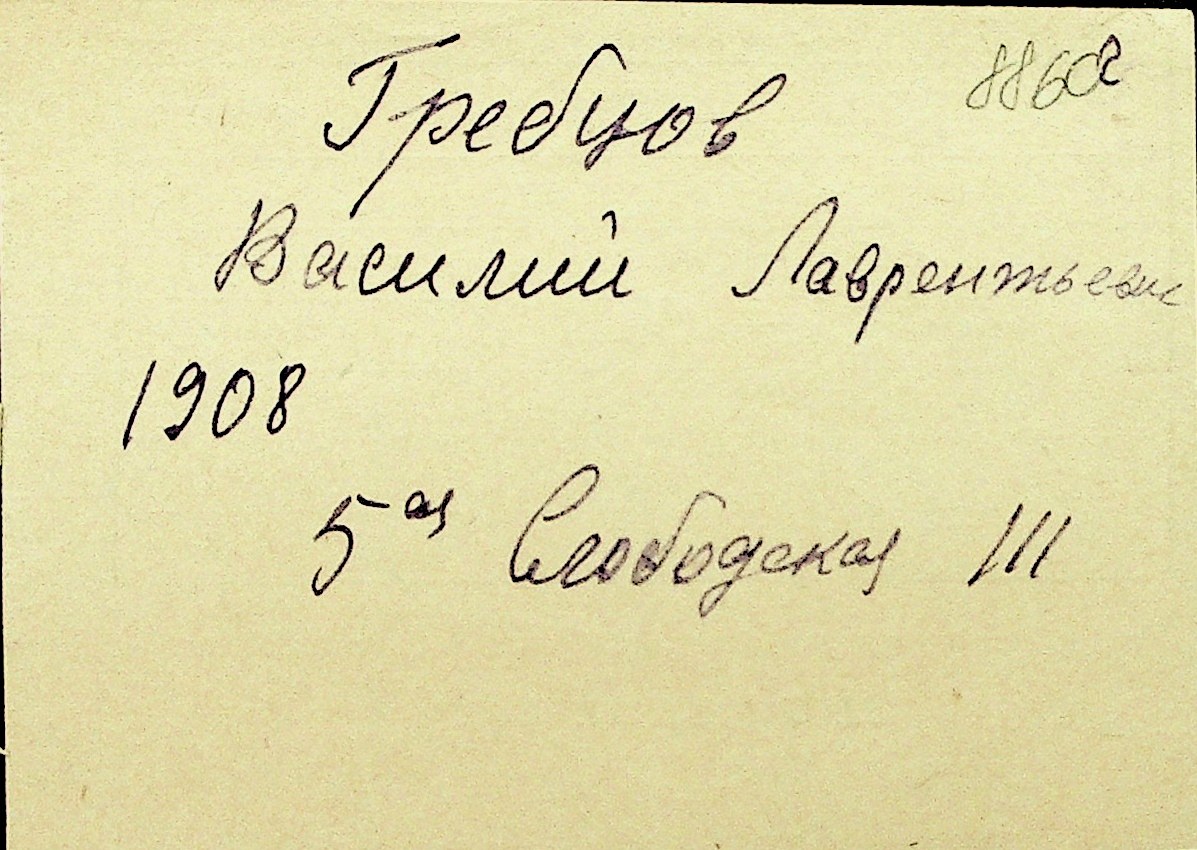 8602
Гребцов
Василий Лаврентьевич
1908
5ая Слободская 111